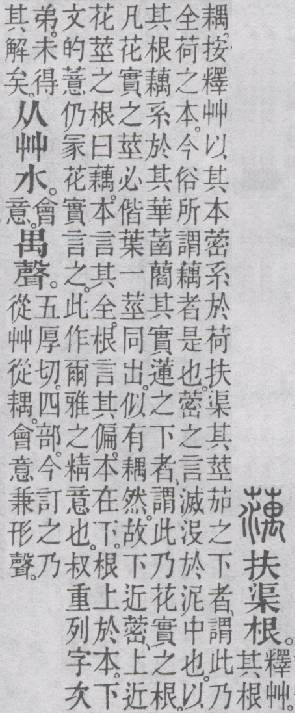 蕅扶渠根。釋艸。其根
耦。按釋艸以其本蔤系於荷扶渠其莖茄之下者、謂此乃
全荷之本。今俗所謂藕者是也。蔤之言滅没於泥中也。以
其根藕系於其華菡其實蓮之下者、謂此乃花實之根。
凡花實之莖必偕葉一莖同出、似有耦然。故下近蔤、上近
花莖之根曰藕。本言其全、根言其偏。本在下、根上於本、下
文的薏仍冡花實言之。此作爾雅之精意也。叔重列字次
弟未得其解矣。从艸水。會意。禺聲。五厚切。四部。今訂之乃從艸從耦。會意兼形聲。